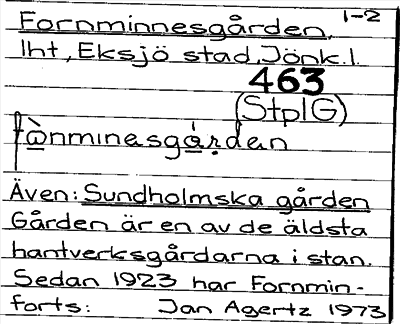 1-2
Fornminnesgården,
lht, Eksjö stad, Jönk. l.
463
(StplG)
fѐnminesgá̱ṛdan
Även: Sundholmska gården
Gården är en av de äldsta
hantverksgårdarna i stan.
Sedan 1923 har Fornmin-
forts: Jan Agertz 1973